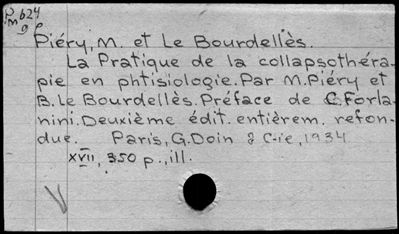 P m 624
9
Piéry, M. et Le Bourdellès.
La Pratique de la collapsothéra-
pie en phtisiologie. Par M. Piéry et
B. Le Bourdellès. Préface de C. Forla-
nini. Deuxième édit. entièrem. refon-
due. Paris, G. Doin & C-ie, 1934
XVII, 350 p., ill.